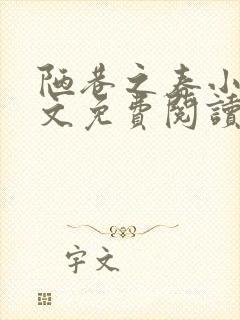 陋巷之春小
文免費閱讀
字文